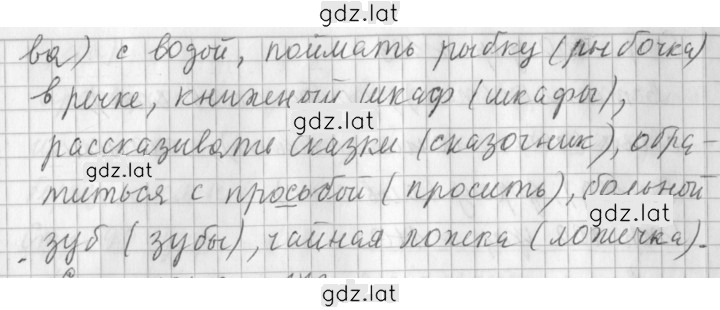 gdz.lat
ва) с водой, поймать рыбку (рыбочка)
в речке, книжный шкаф (шкафы),
gdz.lat
рассказывать сказки (сказочник), обра-
gdz.lat
титься с просьбой (просить), больной
gdz.lat
зуб (зубы), чайная ложка (ложечка).
gdz.lat